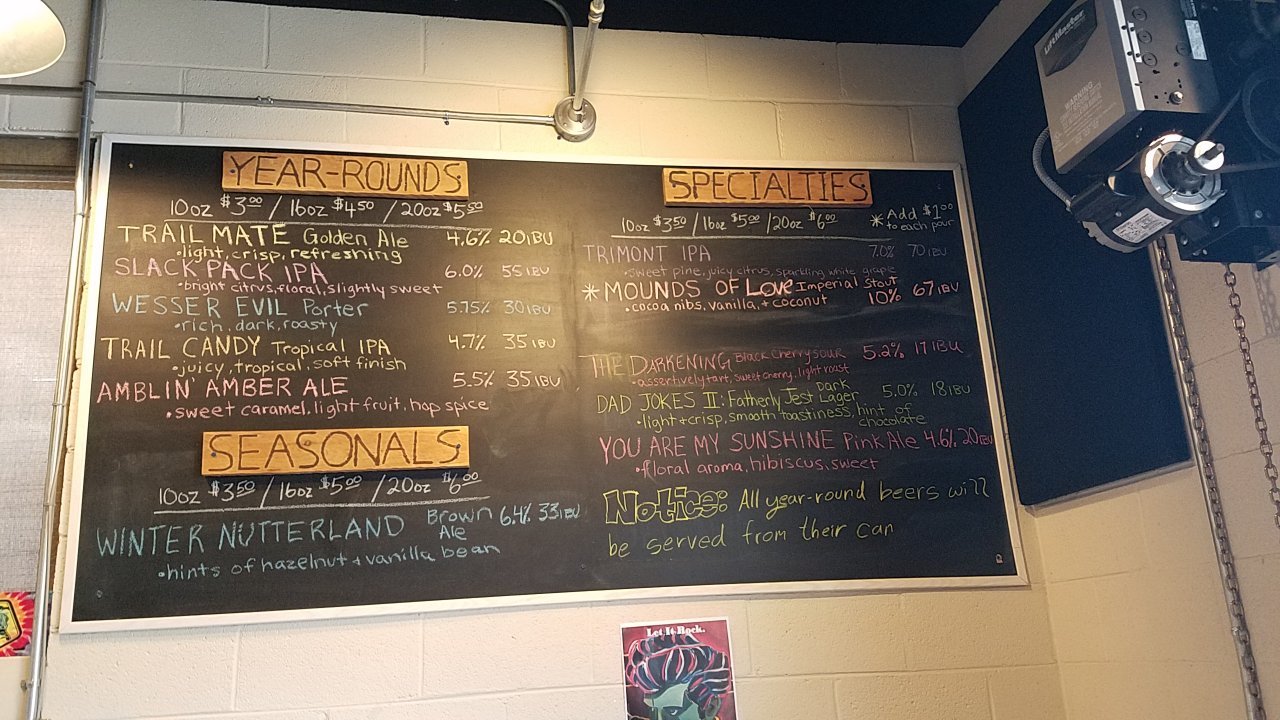 YEAR-ROUNDS
10oz $3.00 / 16oz $4.50 / 20oz $5.50
TRAIL MATE Golden Ale 4.6% 20 IBU
•light, crisp, refreshing
SLACK PACK IPA 6.0% 55 IBU
•bright citrus, floral, slightly sweet
WESSER EVIL Porter 5.75% 30 IBU
•rich, dark, roasty
TRAIL CANDY Tropical IPA 4.7% 35 IBU
•juicy, tropical, soft finish
AMBLIN' AMBER ALE 5.5% 35 IBU
•sweet caramel, light fruit, hop spice
SEASONALS
10oz $3.50 / 16oz $5.00 / 20oz $6.00
WINTER NUTTERLAND Brown Ale 6.4% 33 IBU
•hints of hazelnut + vanilla bean
SPECIALTIES
10oz $3.50 / 16oz $5.00 / 20oz $6.00
*Add $1.00
to each pour
TRIMONT IPA 7.0% 70 IBU
•sweet pine, juicy citrus, sparkling white grape
*MOUNDS OF LOVE Imperial Stout 10% 67 IBU
•cocoa nibs, vanilla, + coconut
THE DARKENING Black Cherry sour 5.2% 17 IBU
•assertively tart, sweet cherry, light roast
DAD JOKES II: Fatherly Jest Dark Lager 5.0% 18 IBU
•light + crisp, smooth toastiness, hint of
chocolate
YOU ARE MY SUNSHINE Pink Ale 4.6% 20 IBU
•floral aroma, hibiscus, sweet
Notice: All year-round beers will
be served from their can
LiftMaster
WARNING
Let It Rock.